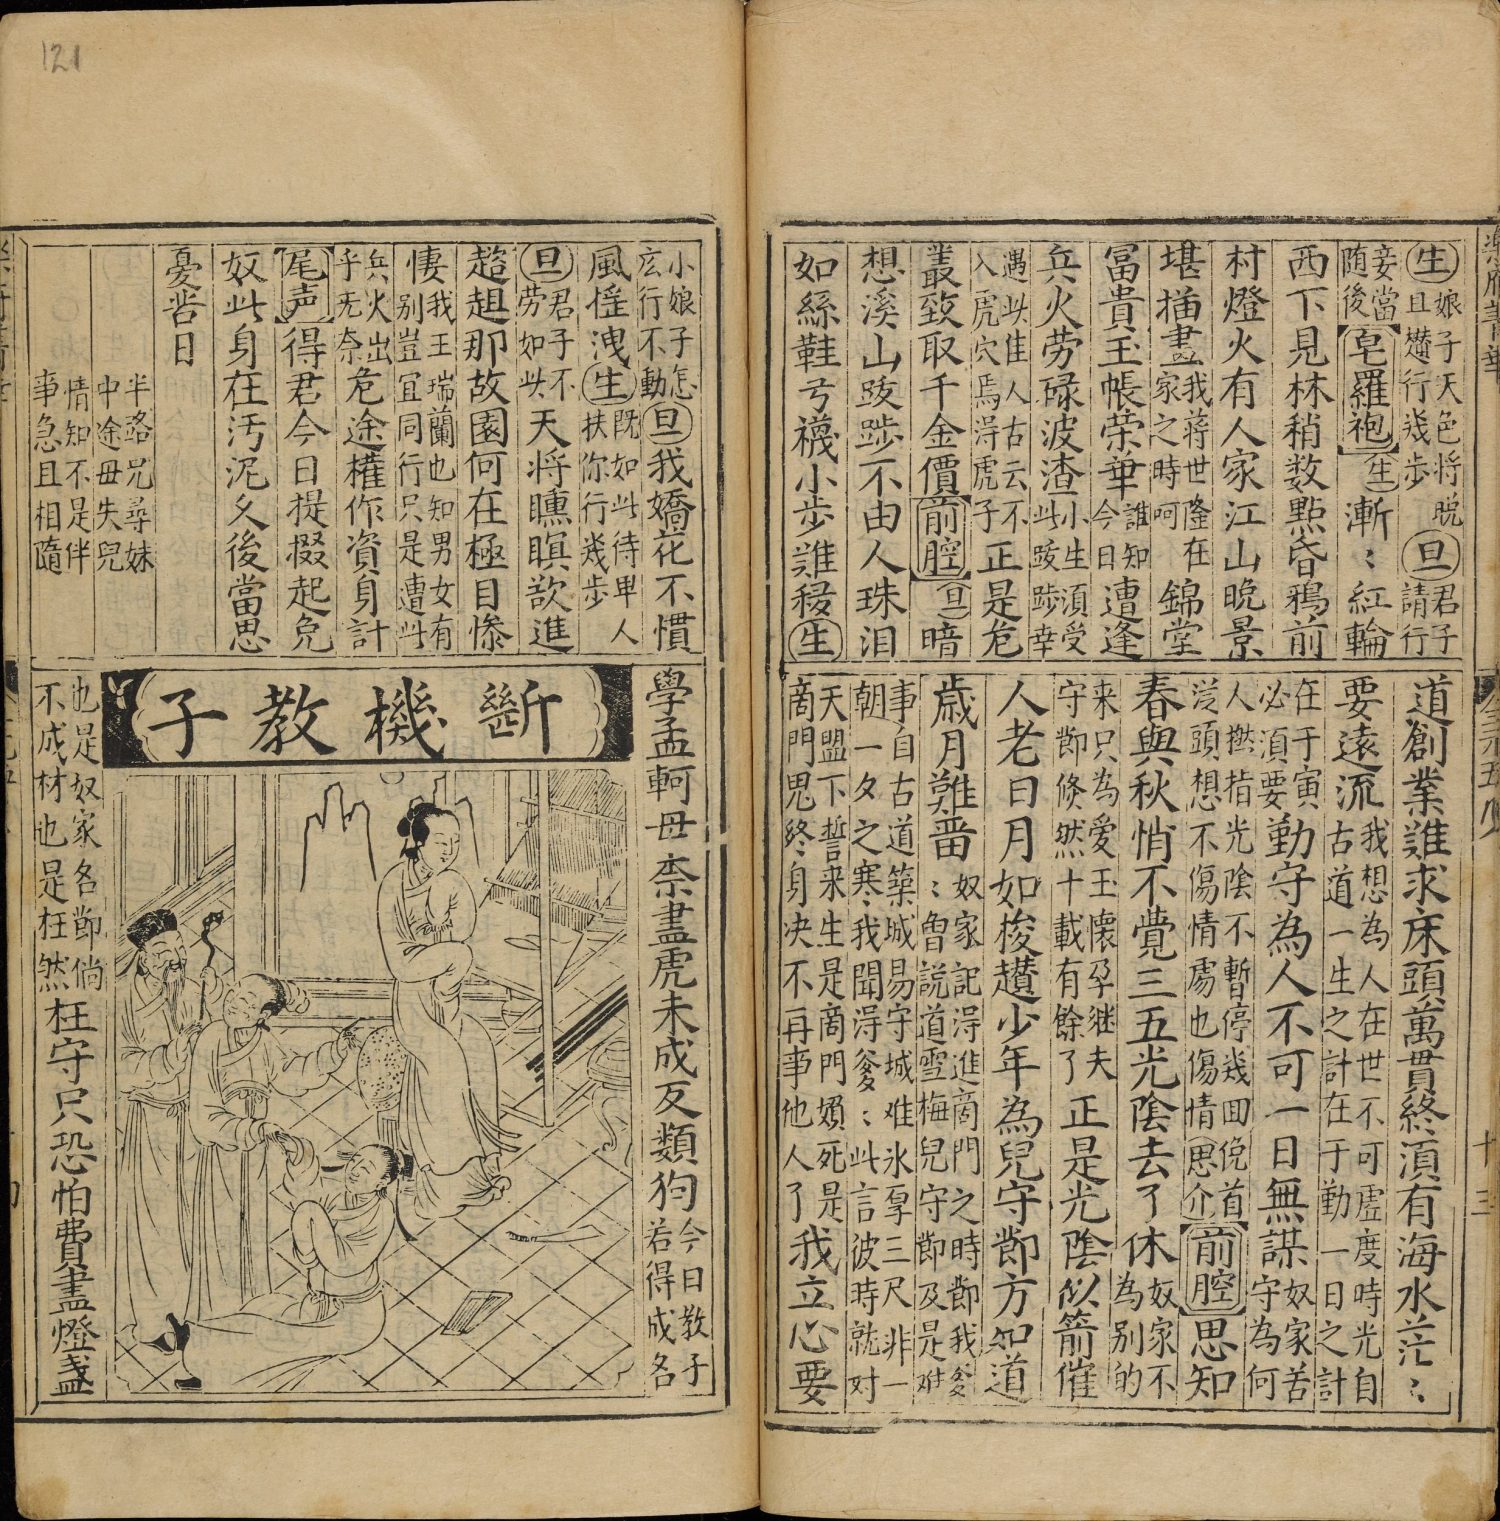 生 娘子天色將晚且趲行幾步 旦 君子請行
妾當隨後 皂羅袍 生 漸〻紅輪
西下見林稍数點昏鴉前
村燈火有人家江山晚景
堪描畫 我蔣世隆在家之時呵 錦堂
富貴玉帳荣華 誰知今日 遭逢
兵火劳碌波渣 小生須受此跋踄幸
遇此佳人古云不入虎穴焉淂虎子 正是危
叢致取千金價 前腔 旦 暗
想溪山跋踄不由人珠泪
如絲鞋弓襪小步難移 生
小娘子怎庅行不動 旦 我嬌花不慣
風洩 生 既如此待卑人扶你行幾步
旦 君子不劳如此 天将曛暝欲進
趦趄那故園何在極目慘
悽 我王瑞蘭也知男女有别豈宜同行只是遭此
兵火出乎无奈 危途權作資身計
尾声 得君今日提掇起免
奴此身在汚泥久後當思
憂昔日
半路兄尋妹
中途母失兒
情知不是伴
事急且相隨
道創業難求床頭萬貫終湏有海水茫〻
要遠流 我想為人在世不可虛度時光自古道一生之計在于勤一日之計
在于寅必湏要 勤守為人不可一日無謀 奴家苦守為何
人撚指光陰不暫停幾囬俛首没頭想不傷情處也傷情 思介 前腔 思知
春與秋悄不覺三五光陰去了休 奴家不為别的
来只為愛玉懷孕継夫守節倏然十載有餘了 正是光陰似箭催
人老日月如梭趲少年為兒守節方知道
歲月難啚〻 奴家記淂進商門之時節我爹〻曾説道雪梅兒守節及是难
事自古道築城易守城难氷厚三尺非一朝一夕之寒我聞淂爹〻此言彼時就对
天盟下誓来生是商門婦死是商門鬼終身决不再事他人了 我立心要
學孟軻母柰畫虎未成反類狗 今日教子若得成名
斷機教子
也是奴家名節倘不成材也是枉然 枉守只恐怕費盡燈盞
十三
121